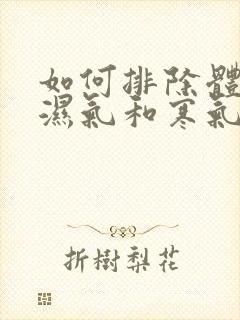 如何排除體
濕氣和寒氣
折樹梨花